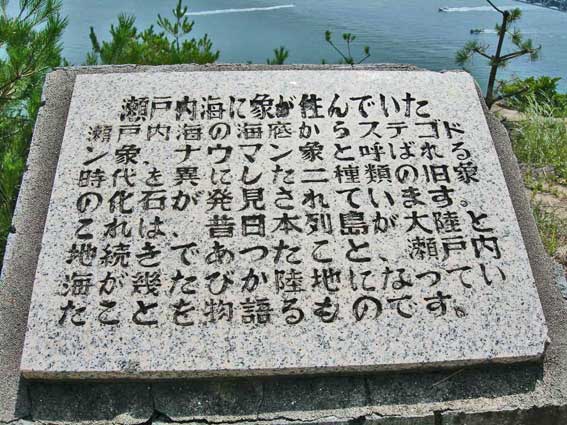 瀬戸内海に象が住んでいた
瀬戸内海の海底からステゴド
ン象、ナウマン象と呼ばれる
時代を異にした二種類の旧象
の化石が発見されています。
これは、昔日本列島が大陸と
地続きであったこと、瀬戸内
海が幾たびか陸地になってい
たことを物語るものです。